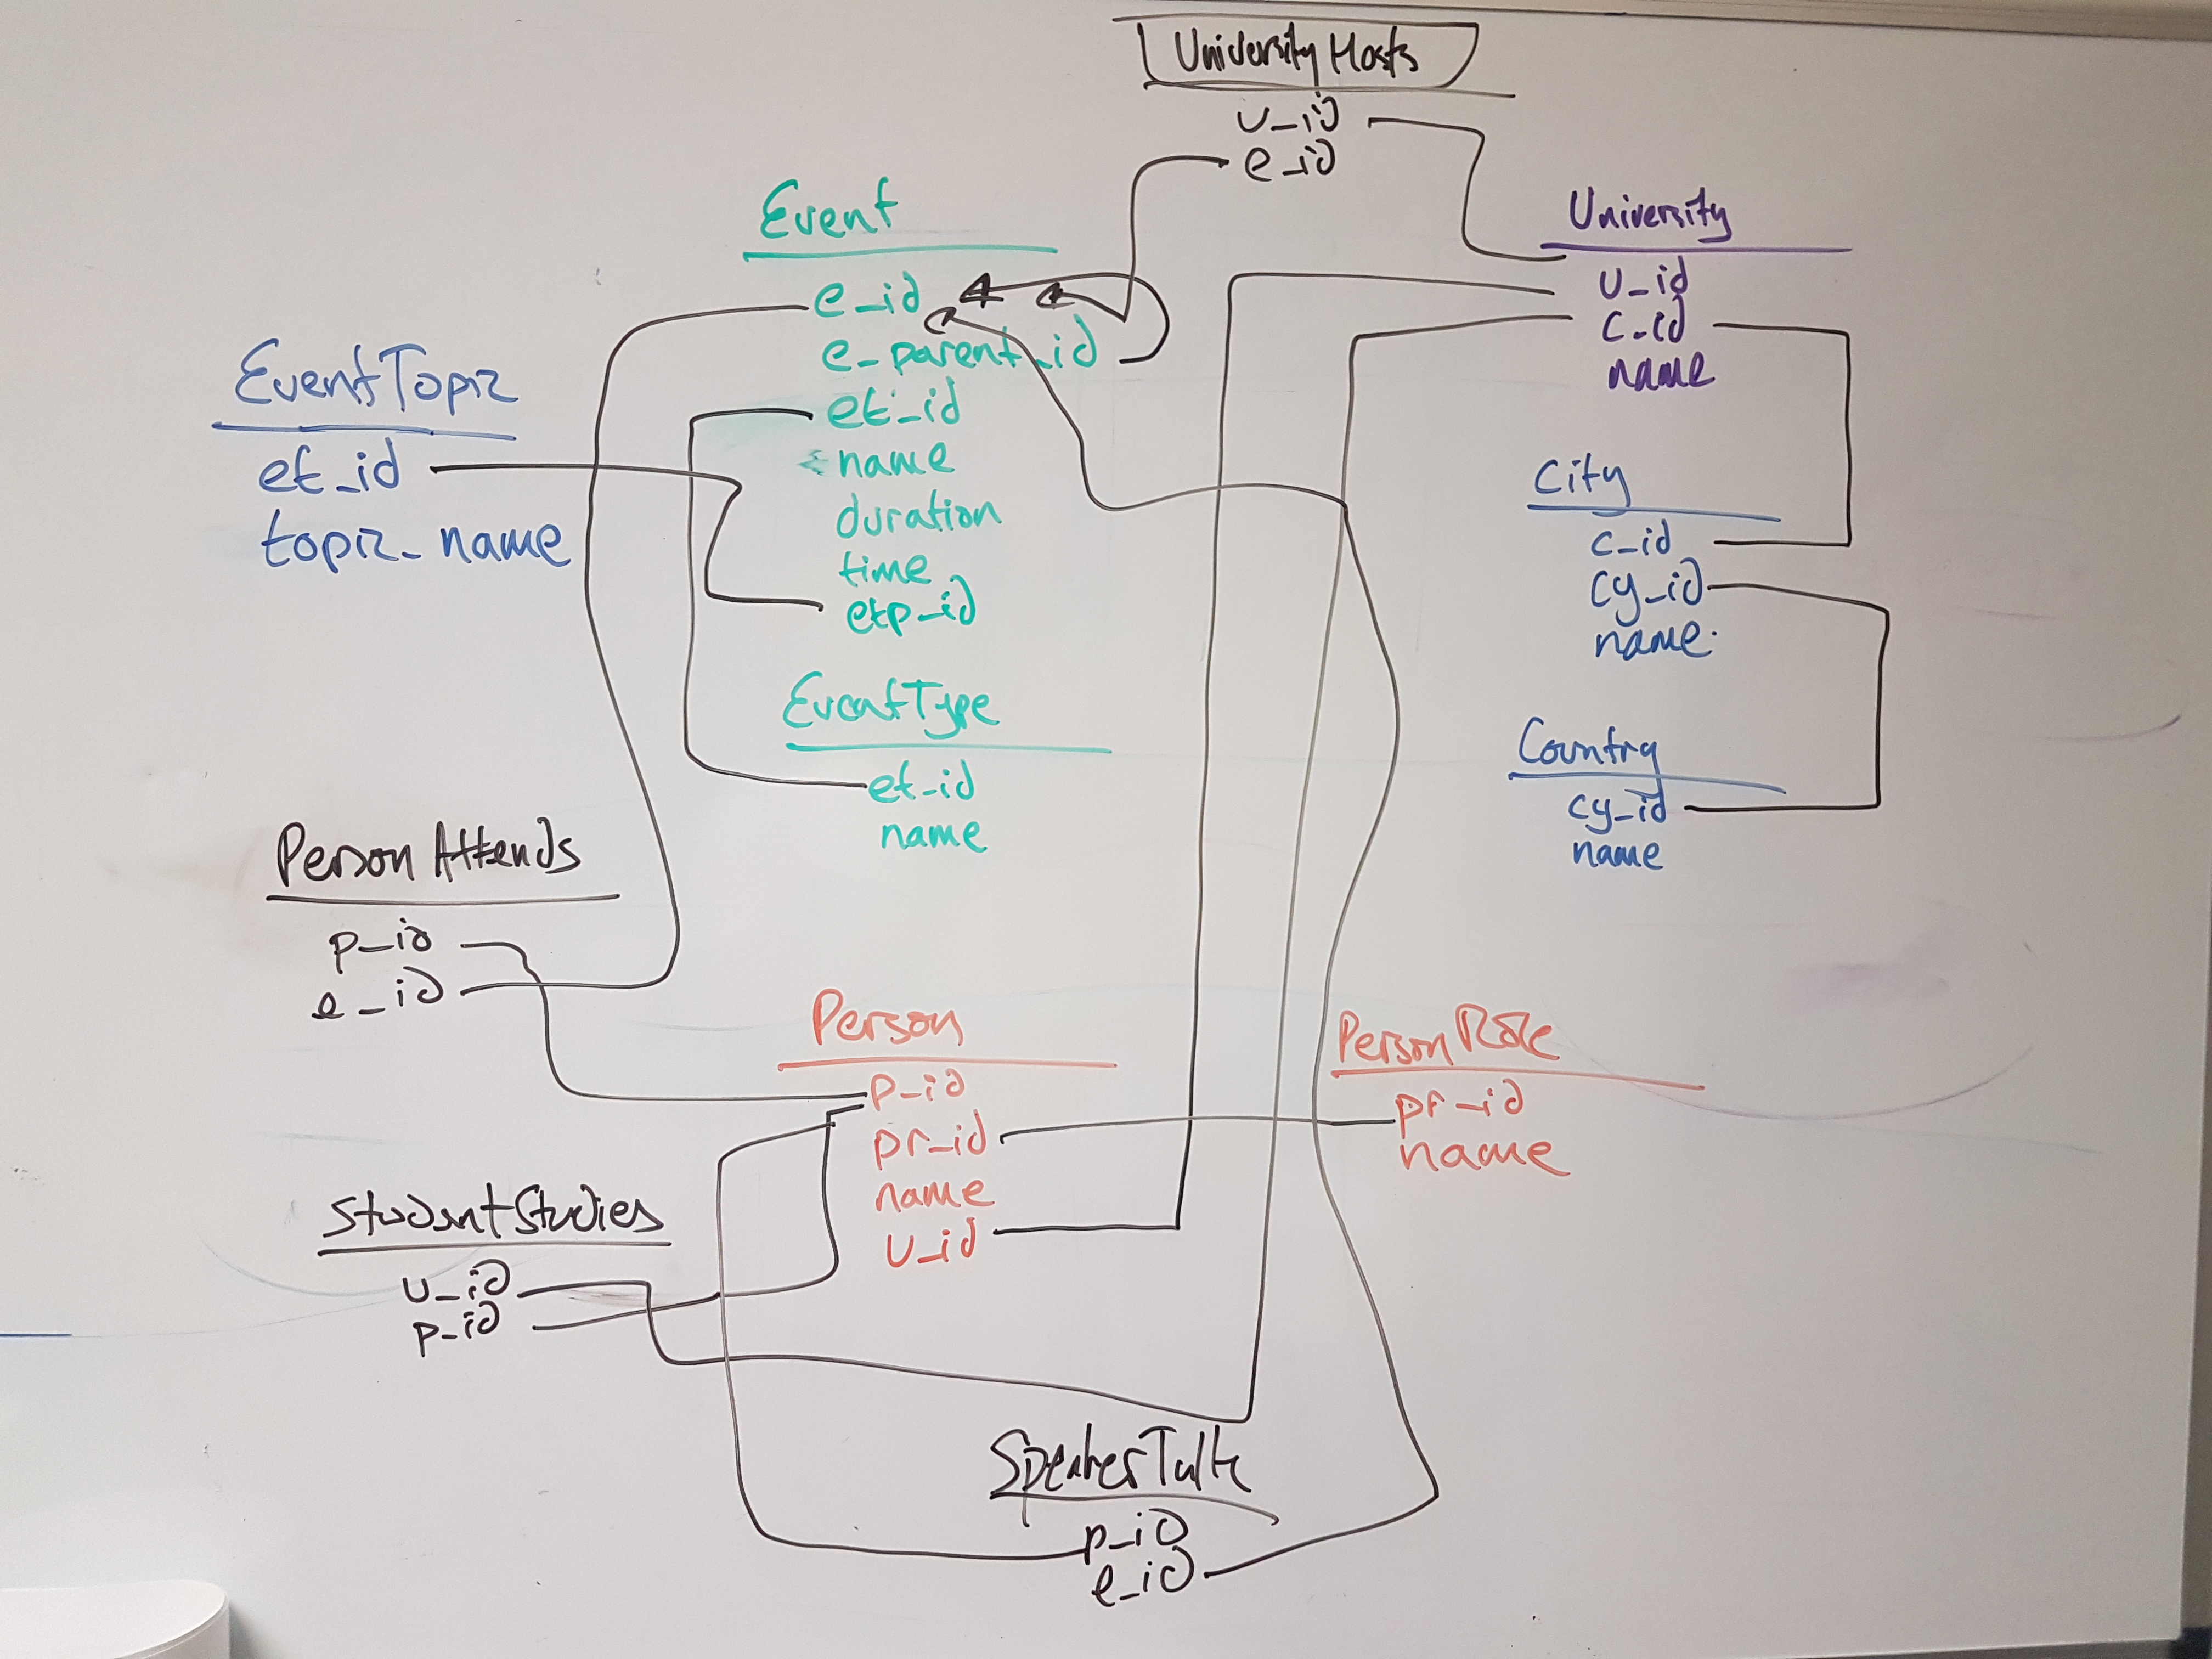 University Hosts
u_id
e_id
Event
e_id
e_parent_id
et_id
name
duration
time
etp_id
University
u_id
c_id
name
EventTopic
et_id
topic_name
City
c_id
cy_id
name
EventType
et_id
name
Country
cy_id
name
Person Attends
p_id
e_id
Person
p_id
pr_id
name
u_id
Person Role
pr_id
name
StudentStudies
u_id
p_id
SpeakerTalk
p_id
e_id